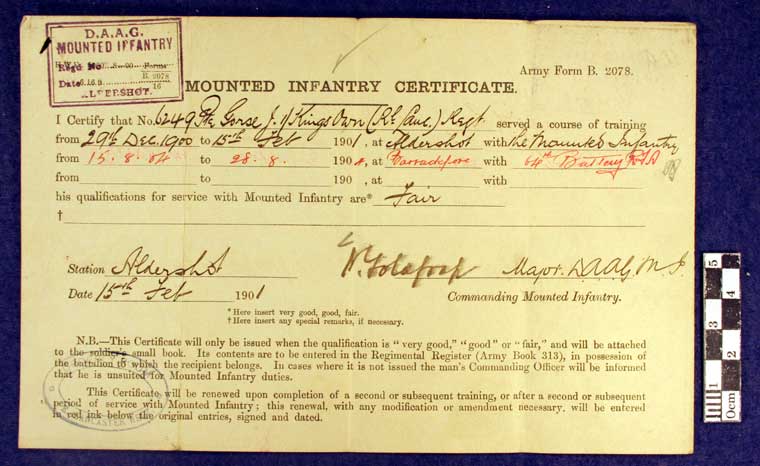 D.A.A.G.
MOUNTED INFANTRY
Regd No
Forms
B. 2078
Date
16
ALDERSHOT.
Army Form B. 2078.
MOUNTED INFANTRY CERTIFICATE.
I Certify that No. 6249 Pte Goose J. 1/Kings Own (Rl Lanc.) Regt served a course of training
from 29th Dec. 1900 to 15th Feb 1901, at Aldershot with the Mounted Infantry
from 15.8.04 to 28.8. 1904, at Barrackpore with 64th Battery RFA
from to 190 , at with
his qualifications for service with Mounted Infantry are* Fair
†
Station Aldershot
Major. D.A.A.G. M.I.
Date 15th Feb 1901
Commanding Mounted Infantry.
* Here insert very good, good, fair.
† Here insert any special remarks, if necessary.
N.B.—This Certificate will only be issued when the qualification is "very good," "good" or "fair," and will be attached
to the soldier's small book. Its contents are to be entered in the Regimental Register (Army Book 313), in possession of
the battalion to which the recipient belongs. In cases where it is not issued the man's Commanding Officer will be informed
that he is unsuited for Mounted Infantry duties.
This Certificate will be renewed upon completion of a second or subsequent training, or after a second or subsequent
period of service with Mounted Infantry; this renewal, with any modification or amendment necessary, will be entered
in red ink below the original entries, signed and dated.
0cm 1 2 3 4 5